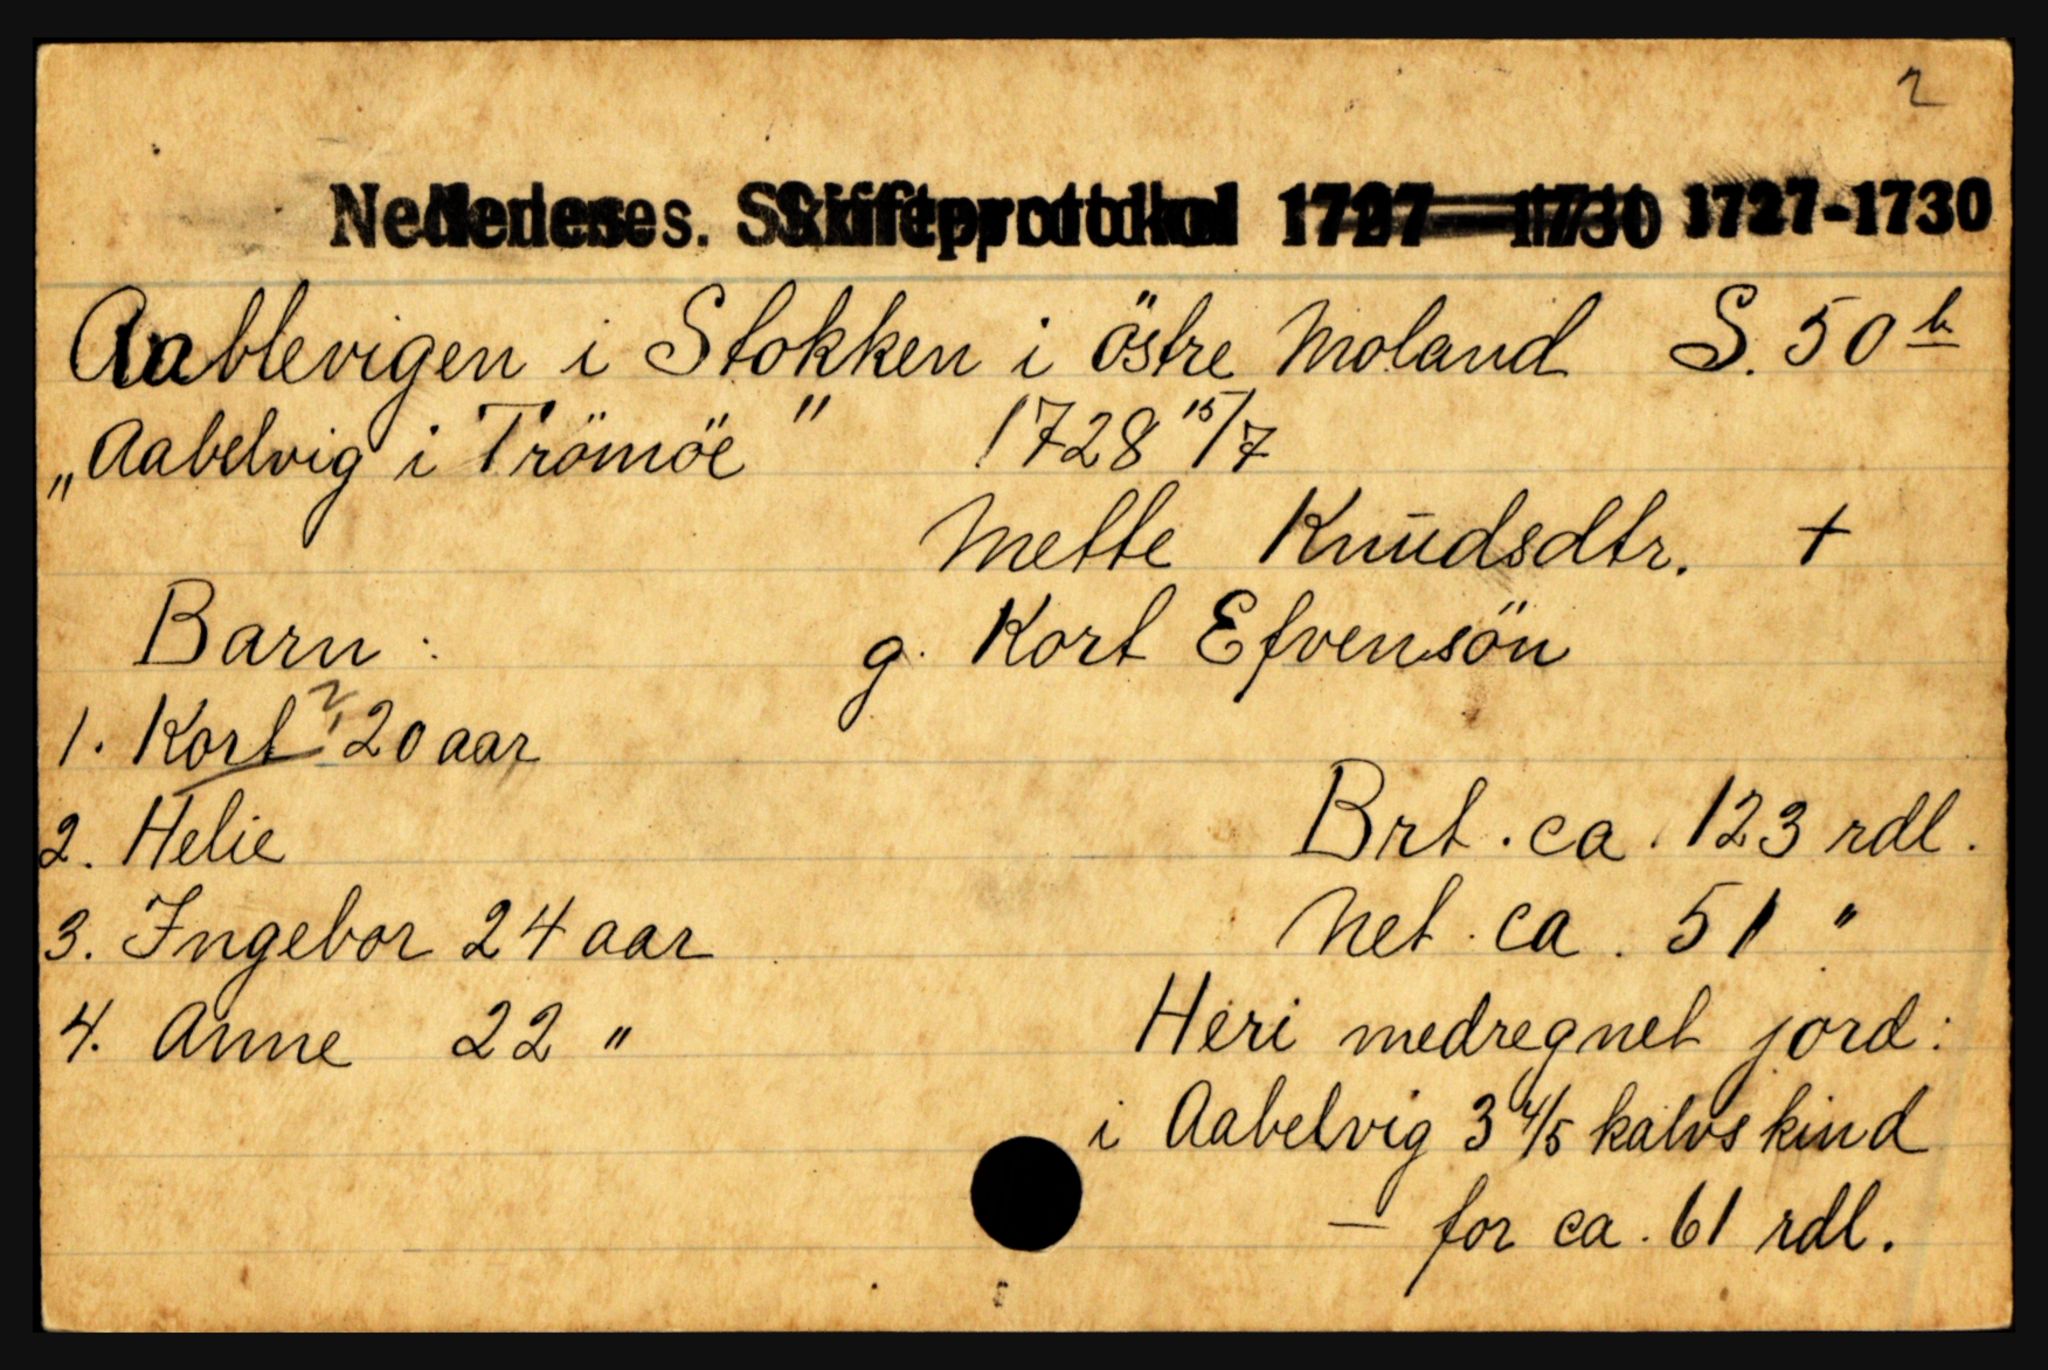 2
Nedenes. Skifteprotokol 1727-1730 1727-1730
Aablevigen i Stokken i östre Moland S. 50 b
„Aabelvig i Trömöe" 1728 15/7
Mette Knudsdtr. +
Barn: g. Kort Efvensön
1. Kort, 20 aar
2. Helie Brt. ca. 123 rdl.
3. Ingebor 24 aar Net. ca. 51 "
4. Anne 22 " Heri medregnet jord:
i Aabelvig 3 4/5 kalvskind
— for ca. 61 rdl.